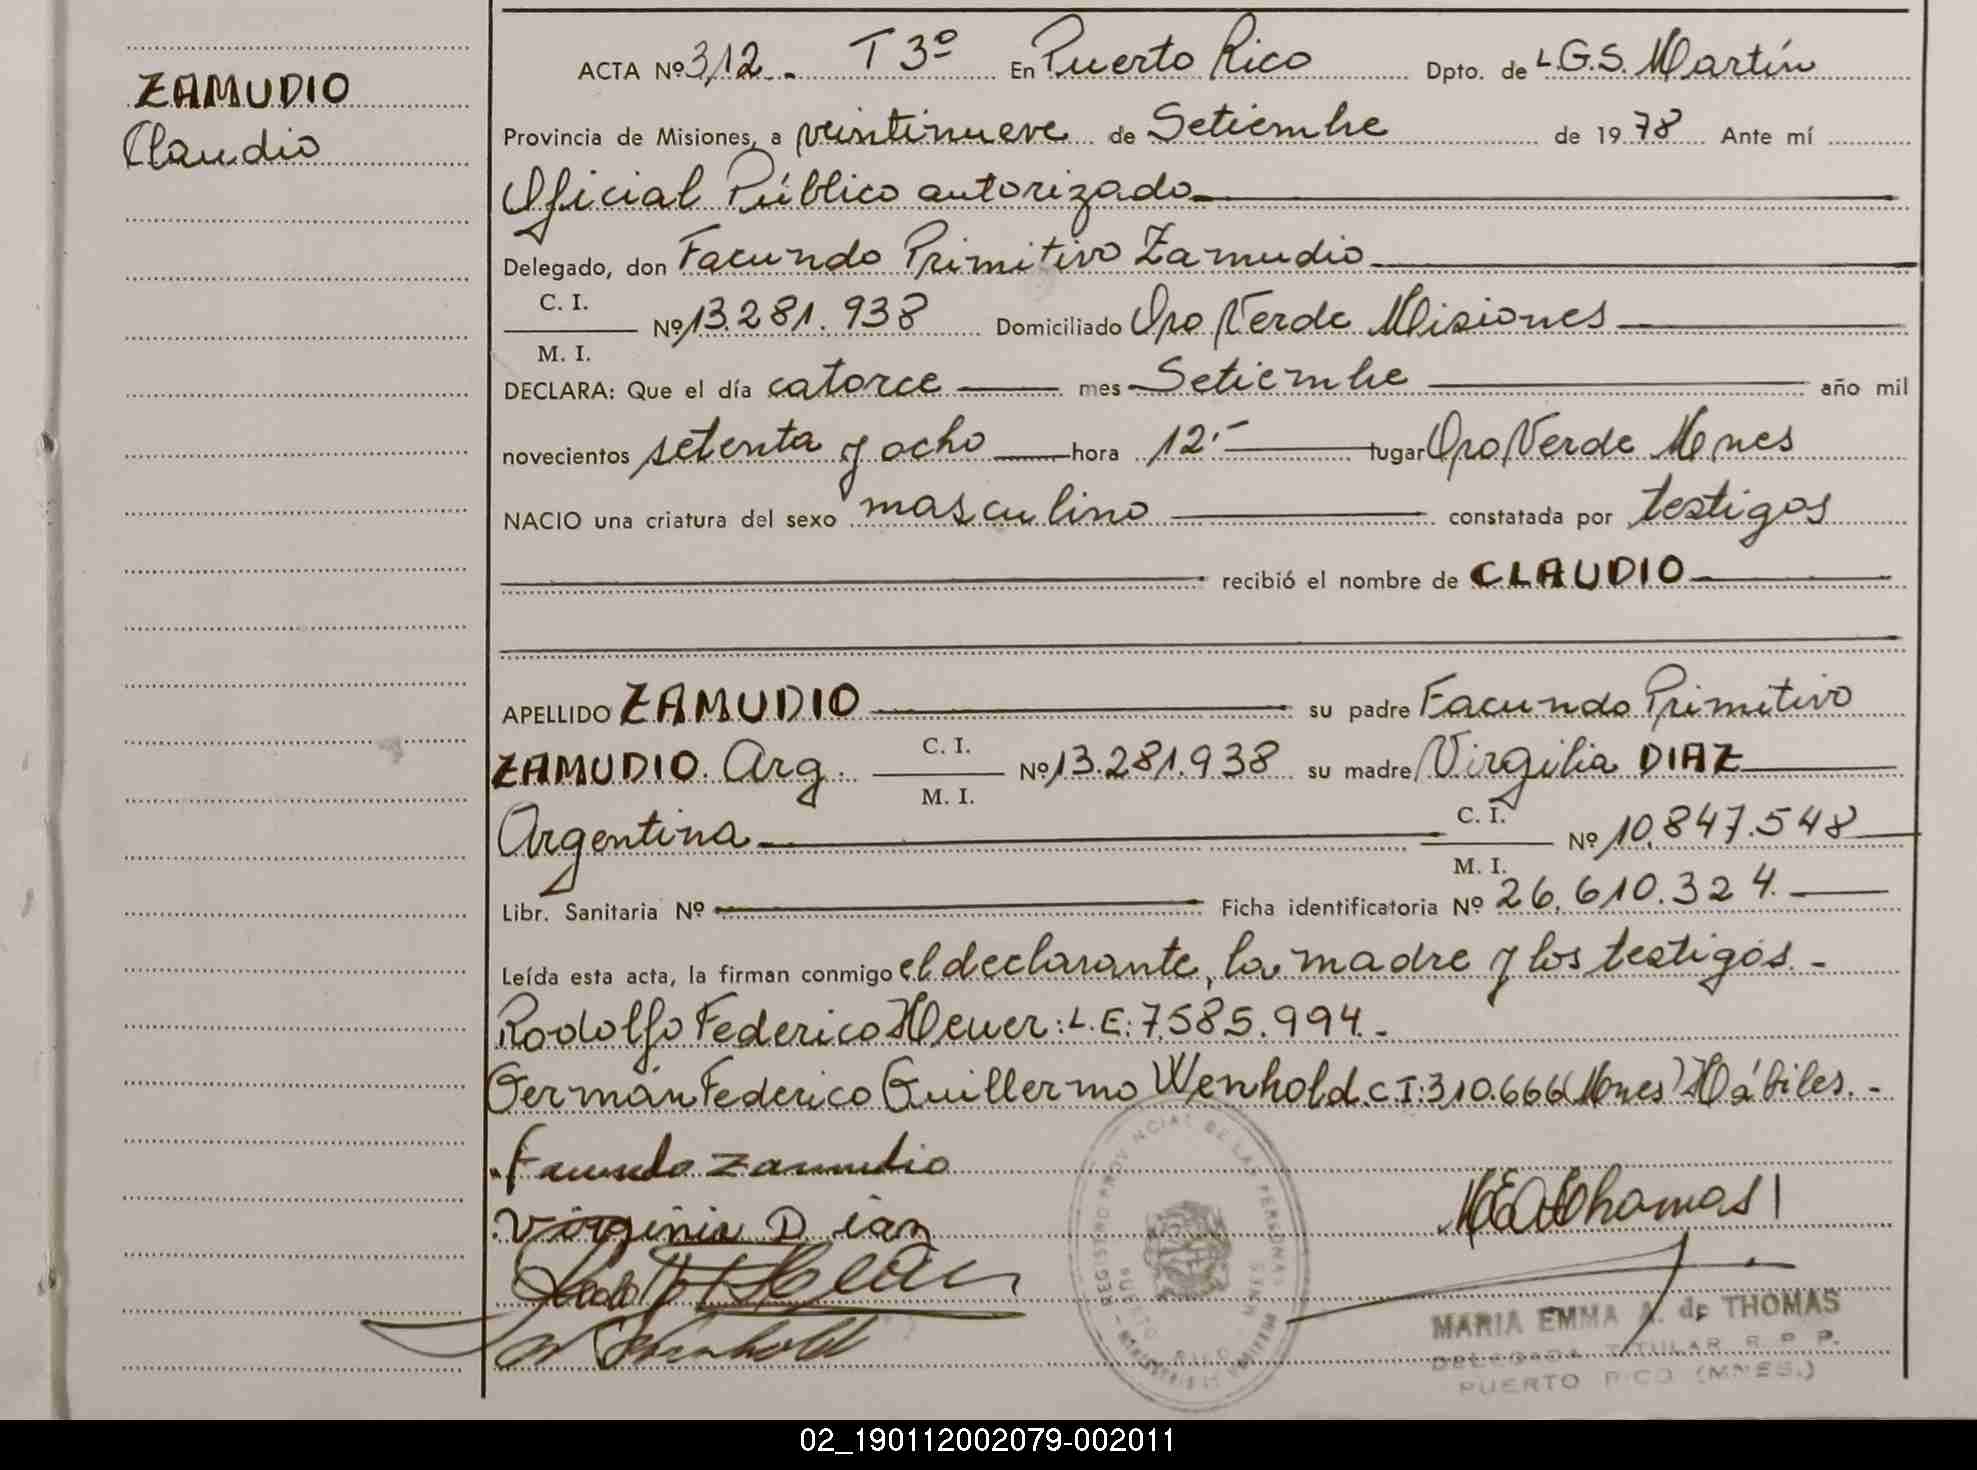 ZAMUDIO
Claudio
ACTA Nº 312. T 3º En Puerto Rico Dpto. de L.G.S. Martín
Provincia de Misiones, a veintinueve de Setiembre de 1978 Ante mí
Oficial Público autorizado
Delegado, don Facundo Primitivo Zamudio
C. I.
M. I.
Nº 13.281.938 Domiciliado Oro Verde Misiones
DECLARA: Que el día catorce mes Setiembre año mil
novecientos setenta y ocho hora 12:- lugar Oro Verde Mnes
NACIO una criatura del sexo masculino constatada por testigos
recibió el nombre de CLAUDIO
APELLIDO ZAMUDIO su padre Facundo Primitivo
ZAMUDIO. Arg. C. I. M. I. Nº 13.281.938 su madre Virgilia DIAZ
Argentina C. I. M. I. Nº 10.847.548
Libr. Sanitaria Nº Ficha identificatoria Nº 26.610.324.
Leída esta acta, la firman conmigo el declarante, la madre y los testigos.-
Rodolfo Federico Heuer: L.E: 7.585.994.-
Germán Federico Guillermo Wenhold. C.I: 310.666 (Mnes) Hábiles.-
Facundo Zamudio
Virginia Diaz
REGISTRO PROVINCIAL DE LAS PERSONAS
PUERTO RICO
MARIA EMMA A. de THOMAS
DELEGADA TITULAR R. P. P.
PUERTO RICO (MNES.)
02_190112002079-002011